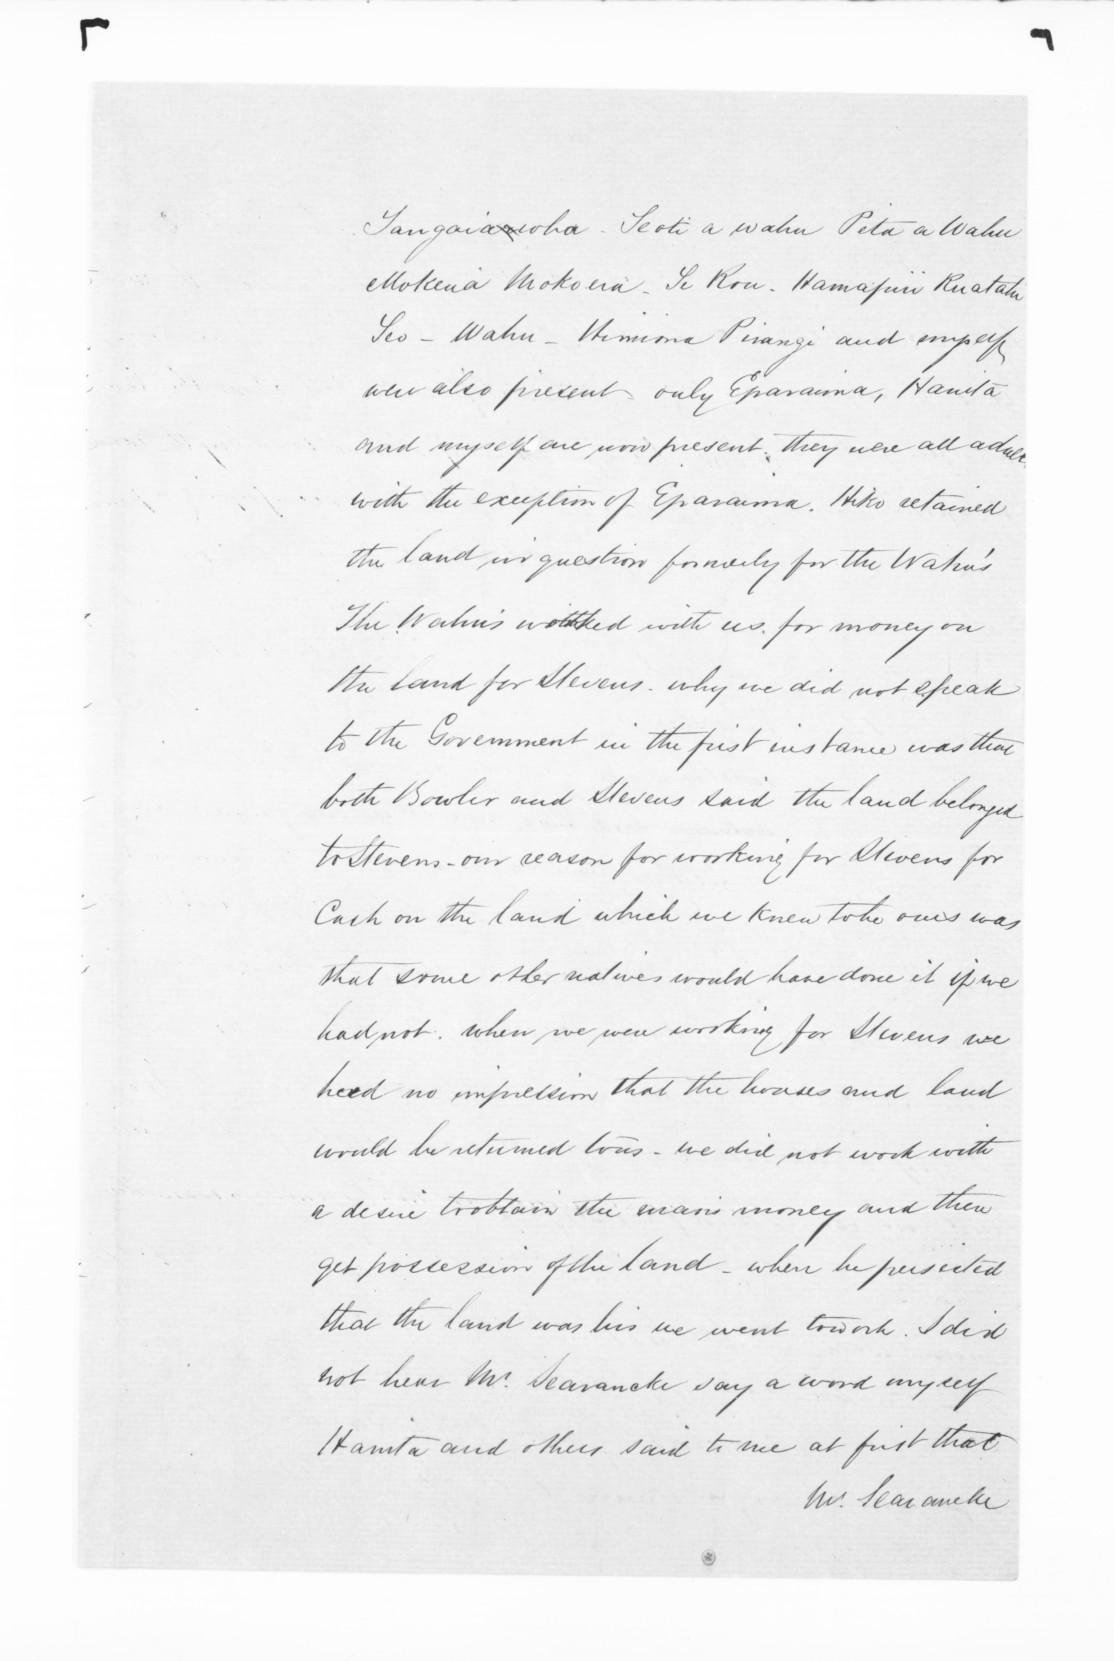 Tangaiawoha - Teoti a wahu Peta a Wahu
Mokena Mokoera - Te Kou - Hamapiri Ruatahi
Teo - Wahu - Himiona Pirangi and myself
were also present only Eparaima, Hanita
and myself are now present. they were all adults
with the exception of Eparaima. Hiko retained
the land in question formerly for the Wahu's
The Wahu's worked with us. for money on
the land for Stevens. why we did not speak
to the Government in the first instance was that
both Bowler and Stevens said the land belonged
to Stevens - our reason for working for Stevens for
Cash on the land which we knew to be ours was
that some other natives would have done it if we
had not. when we were working for Stevens we
had no impression that the houses and land
would be returned to us - we did not work with
a desire to obtain the man's money and then
get possession of the land - when he persisted
that the land was his we went to work. I did
not hear Mr. Searancke say a word myself
Hanita and others said to me at first that
Mr. Searancke